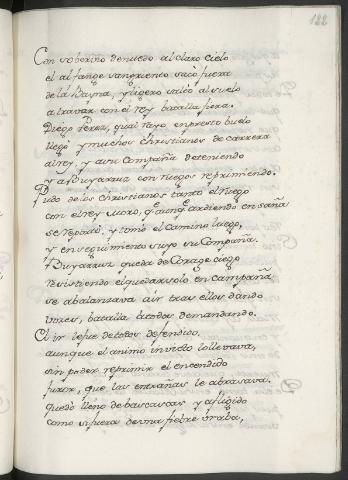 122
Con soberuio denuedo al claro cielo
el alfange sangriento sacó fuera
de la Bayna, y ligero saltó al suelo
a trauar con el rey batalla fiera.
Diego Perez, qual rayo en presto buelo
llegó y muchos christianos de carrera
al rey, y a su compaña deteniendo
y a Buyarruz con ruegos reprimiendo.
Pudo de los Christianos tanto el ruego
con el rey Moro, q aunq ardiendo en saña
se reparó, y tomó el camino luego,
y en seguimiento suyo su Compaña.
Buyarruz queda de Corage ciego
resistiendo el quedar solo en campaña
se abalansaua a ir tras ellos dando
vozes, batalla a todos demandando.
El ir le fue de todos defendido.
aunque el animo inuicto lo lleuaua,
sin poder reprimir el encendido
furor, que las entrañas le abrasaua.
quedó lleno de bascas y afligido
como si fuera de vna fiebre braba,